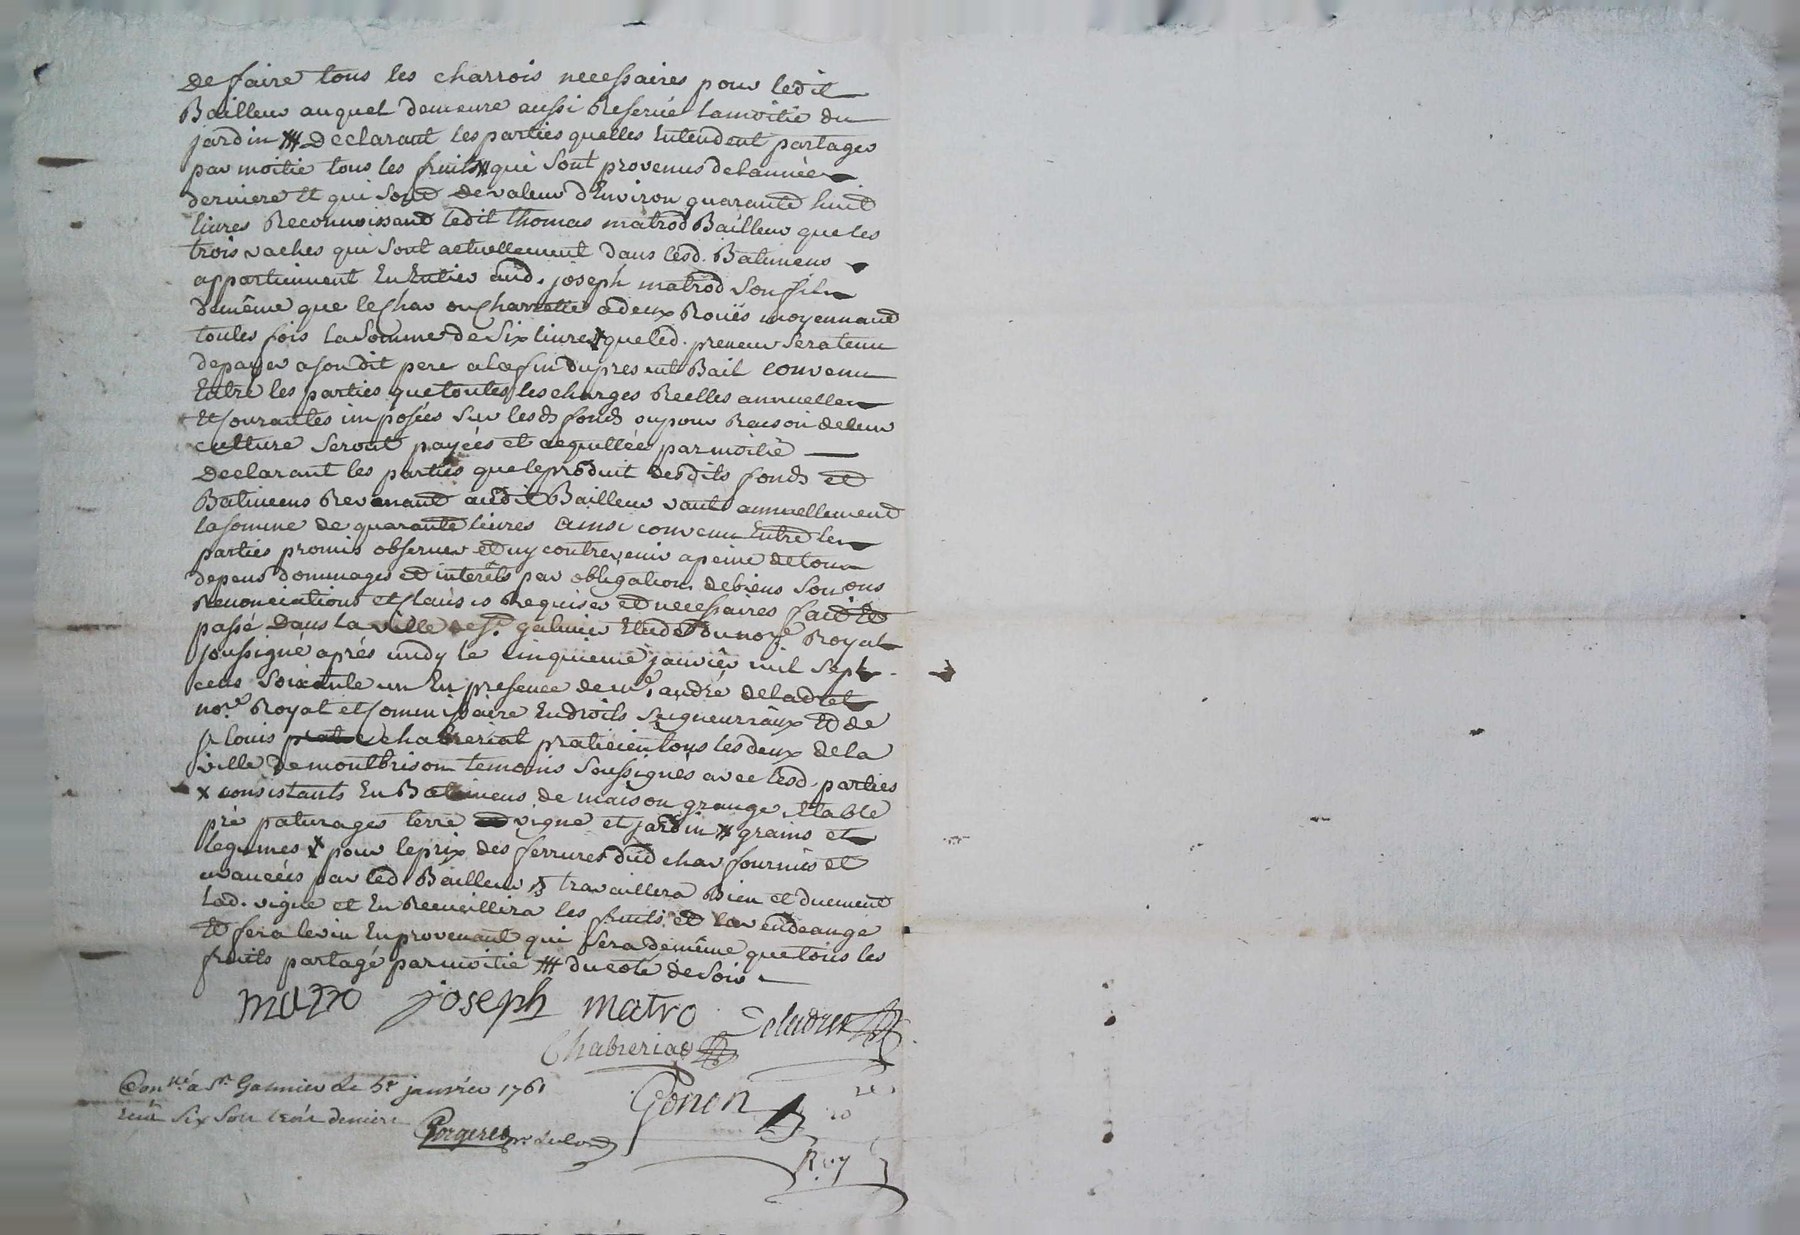 de faire tous les charrois necessaires pour ledit
Bailleur auquel demeure aussi Reservé lamoitie du
jardin ♯ Declarant les parties quelles Entendent partager
par moitié tous les fruits ♯ qui sont provenus delannée
derniere et qui sont devaleur d'Environ quarante huit
livres Reconnoissant ledit thomas matrod Bailleur que les
trois vaches qui sont actuellement dans lesd. Batimens
appartiennent En Entier aud. joseph matrod son fils
demême que le char ou charrette adeux Roües moyennant
toutes fois la somme de six livres x que led. preneur seratenu
depayer asondit pere alafin dupresent Bail convenu
Entre les parties que toutes les charges Réelles annuelles
Et courantes imposées sur lesds fonds oupour Raison deleur
culture seront payées et acquittées parmoitié
Declarant les parties que le produit desdits fonds et
Batimens Revenant audit Bailleur vaut annuellement
la somme de quarante livres ainsi convenu Entre les
parties promis observer et ny contrevenir apeine detous
depens dommages et interêts par obligation debiens
Renonciations et clauses Requises et necessaires fait Et
passé dans la ville de St. galmier Etude du nore. Royal
soussigné aprés midy le cinquieme janvier mil sept
cens soixante un En presence de mr. andré deladret
nore. Royal et commissaire Endroits seigneuriaux et de
sr louis chabreriat praticien tous les deux de la
ville demontbrison temoins soussignés avec lesd. parties
x consistants En Batimens de maison grange Etable
pré paturages terre vigne et jardin ♯ grains et
legumes x pour leprix des ferrures dud char fournies et
avancées par led. Bailleur ♯ travaillera Bien et duement
lad. vigne et En Recueillira les fruits et la vendeange
Et fera levin Enprovenant qui sera demême quetous les
fruits partagé parmoitié ♯ ducoté de soir
matro joseph matro Deladret
Chabreriat
Conlé. a St. Galmier le 5e. janvier 1761
Gonon
Recu six sols trois deniers
Gorgeret
Roy